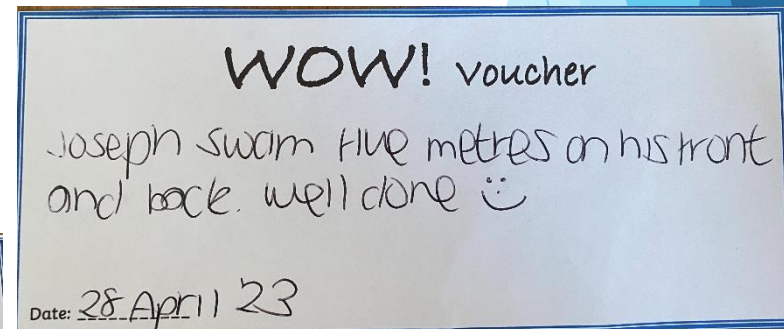 WOW! voucher
Joseph swam five metres on his front
and back. well done
Date: 28 April 23